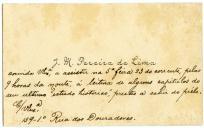 J. M. Pereira de Lima
convida V. Exª. a assistir na 5ª feira 23 do corrente, pelas
9 horas da noute, á leitura de alguns capitulos do
seu ultimo estudo historico, prestes a sahir do prélo.
C/ V. Exª
159-1º Rua dos Douradores.